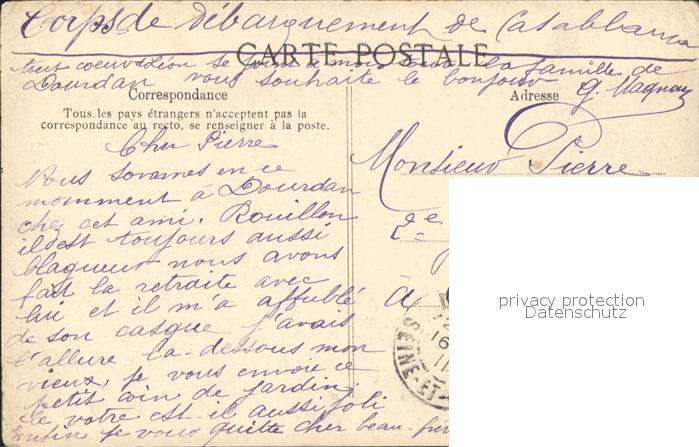 Corps de Débarquement de Casablanca
CARTE POSTALE
tout coeur Léon se joint à moi la famille de
Dourdan vous souhaite le bonjour G. Magnan
Correspondance
Adresse
Tous les pays étrangers n'acceptent pas la
correspondance au recto, se renseigner à la poste.
Cher Pierre
Monsieur Pierre
Nous sommes en ce
momment à Dourdan
chez cet ami. Rouillon
2e
il est toujours aussi
blagueur nous avons
fait la retraite avec
à
lui et il m'a affublé
de son casque j'avais
l'allure la-dessous mon
vieux, je vous envoie ce
petit coin de jardin,
le votre est-il aussi joli
enfin je vous quitte cher beau-
SEINE-ET-
16
11
privacy protection
Datenschutz